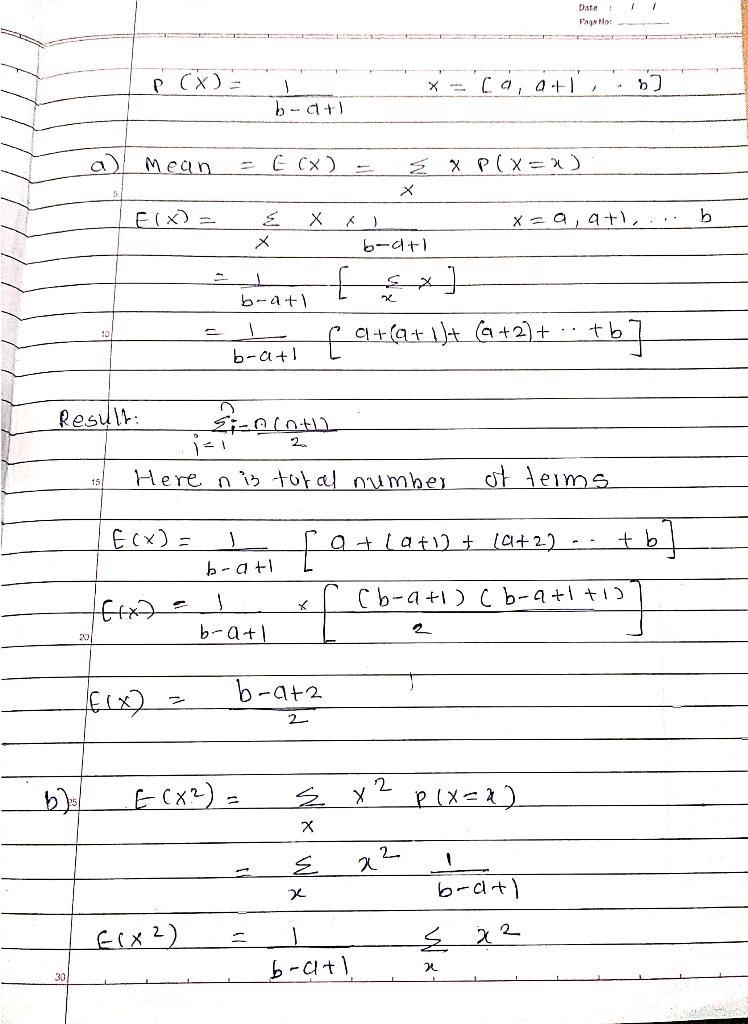 Date : / /
Page No:
P(X) = 1/(b-a+1) x = [a, a+1, .. b]
a) Mean = E(X) = Σ_x x P(X=x)
5
E(X) = Σ_x x × 1/(b-a+1) x = a, a+1, ... b
= 1/(b-a+1) [Σ_x x]
10 = 1/(b-a+1) [a+(a+1)+(a+2)+ .. +b]
Result: Σ_{i=1}^n i = n(n+1)/2
15 Here n is total number of terms
E(X) = 1/(b-a+1) [a + (a+1) + (a+2) .. + b]
20 E(X) = 1/(b-a+1) × [(b-a+1)(b-a+1+1)/2]
E(X) = (b-a+2)/2
b) 25 E(X²) = Σ_x x² P(X=x)
= Σ_x x² 1/(b-a+1)
30 E(X²) = 1/(b-a+1) Σ_x x²